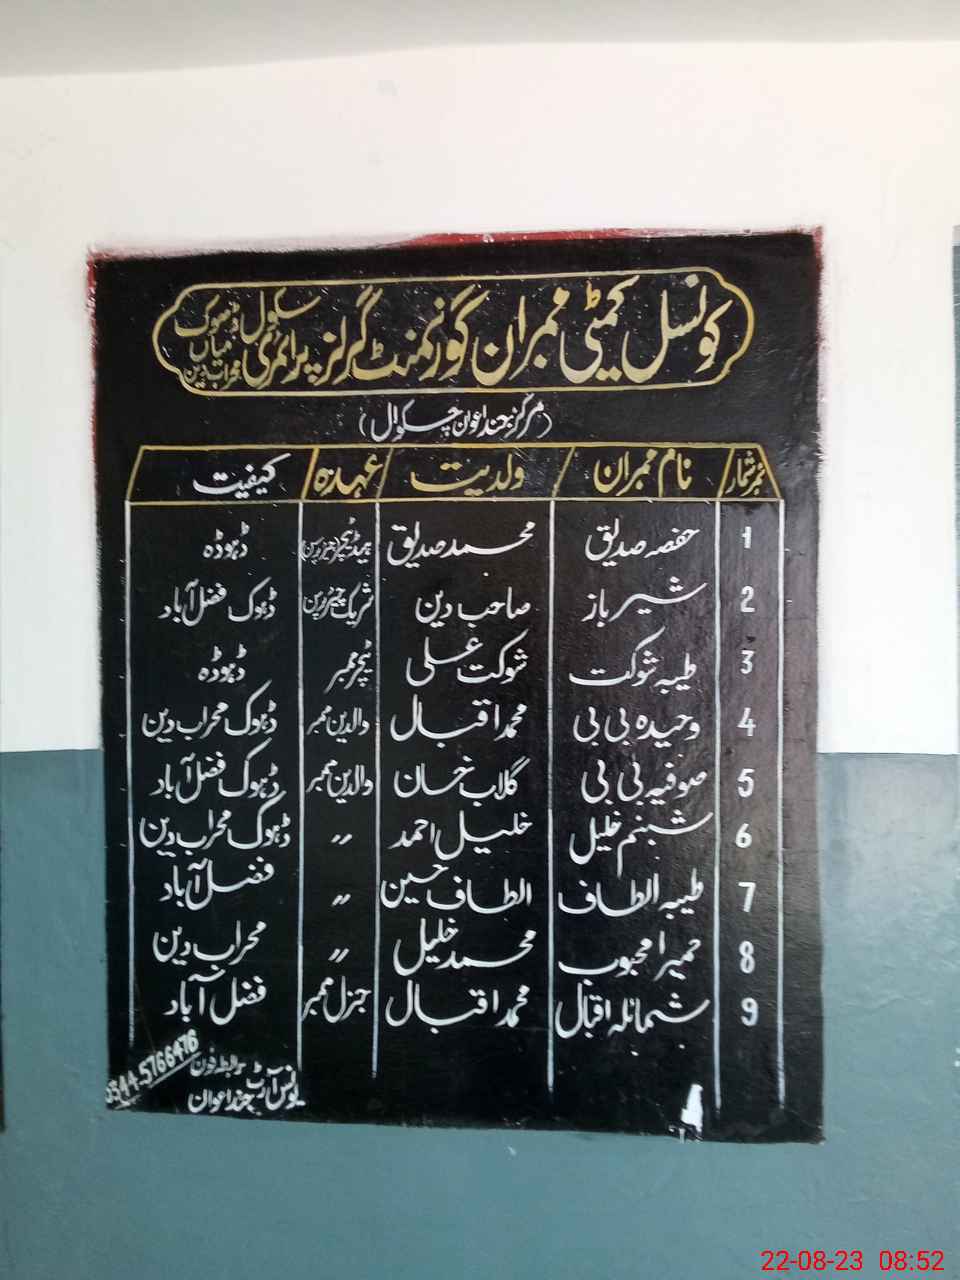 کونسل کمیٹی ممبران گورنمنٹ گرلز پرائمری سکول ڈھوک میاں محراب دین
(مرکز جنڈ اعوان چکوال)
نمبر شمار نام ممبران ولدیت عہدہ کیفیت
1 حفصہ صدیق محمد صدیق ہیڈ ٹیچر (چیئر پرسن) ڈہوڈہ
2 شیر باز صاحب دین شریک چیئر پرسن ڈہوک فضل آباد
3 طیبہ شوکت شوکت علی ٹیچر ممبر ڈہوڈہ
4 وحیدہ بی بی محمد اقبال والدین ممبر ڈہوک محراب دین
5 صوفیہ بی بی گلاب خان والدین ممبر ڈہوک فضل آباد
6 شبنم خلیل خلیل احمد 〃 ڈہوک محراب دین
7 طیبہ الطاف الطاف حسین 〃 فضل آباد
8 حمیرا محبوب محمد خلیل 〃 محراب دین
9 شمائلہ اقبال محمد اقبال جنرل ممبر فضل آباد
رابطہ فون 0344-5766476
یونس آرٹ جنڈ اعوان
22-08-23 08:52